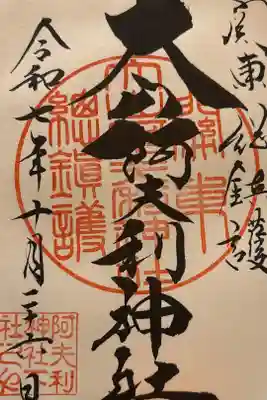 関東総鎮護
大山阿夫利神社
令和七年十月二十六日
關東
總鎮護
阿夫利
神社下
社之印